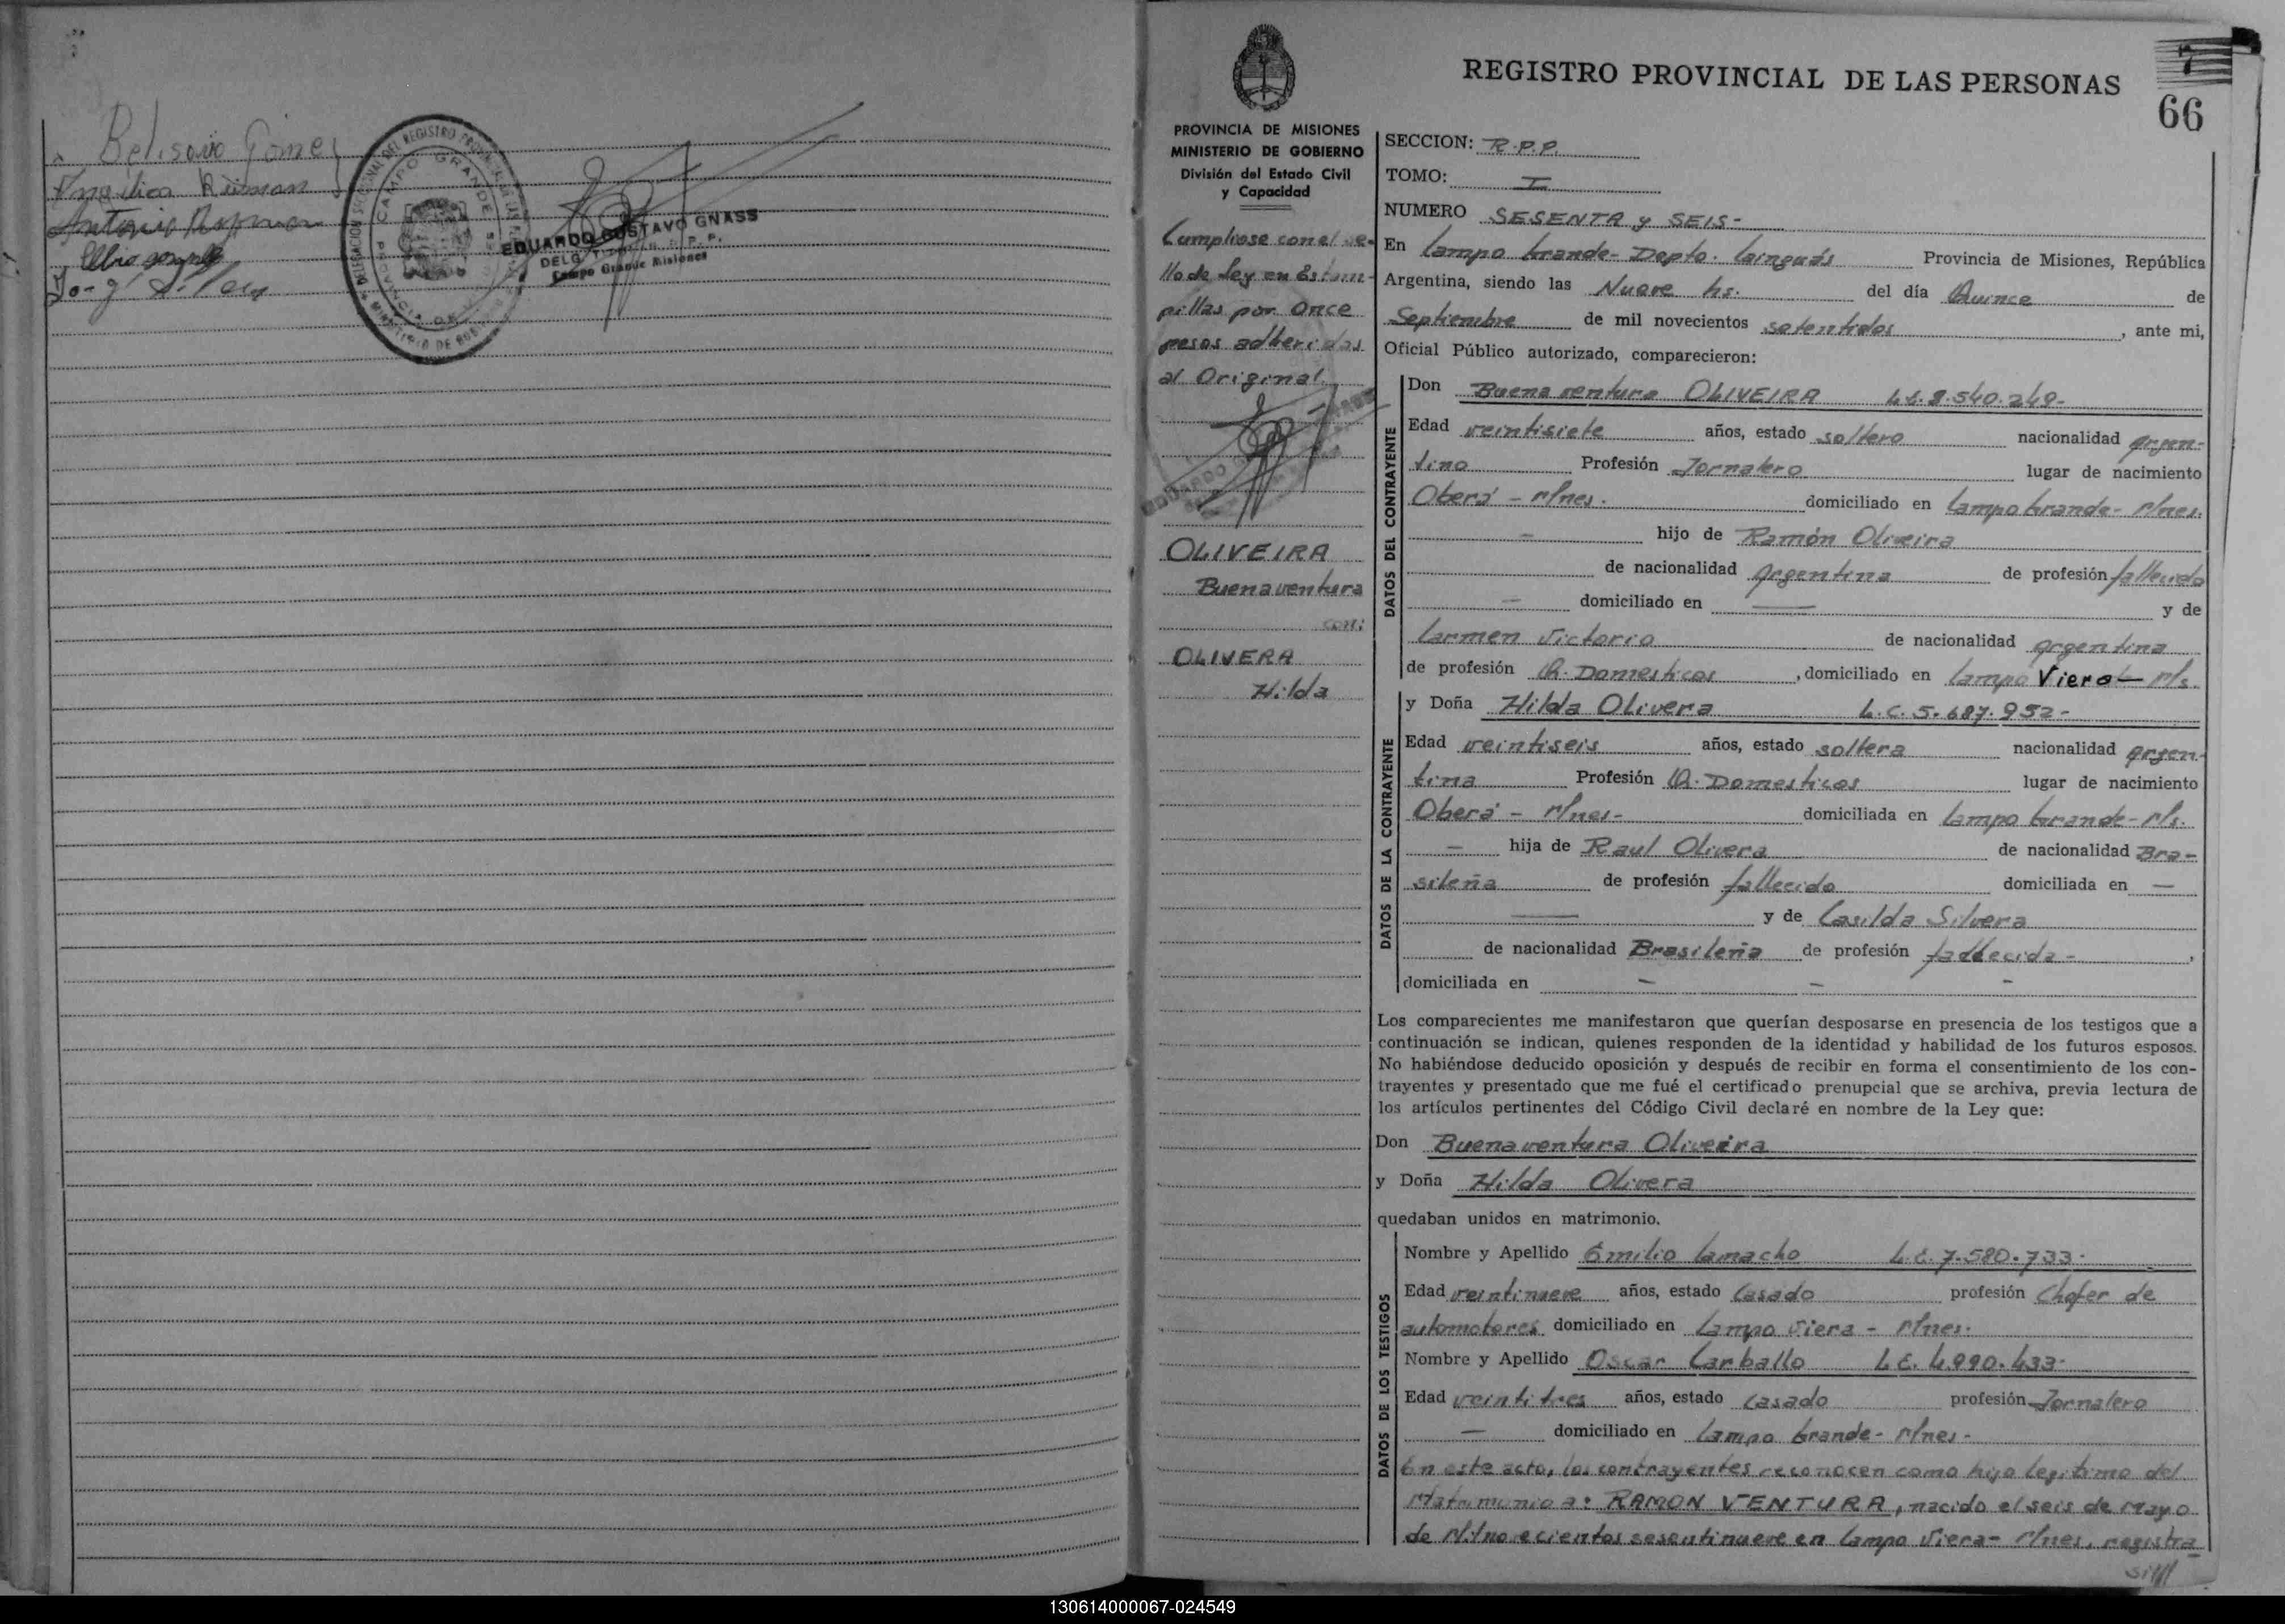 Belisario Gomez
Angélica
Antonio
EDUARDO GUSTAVO GNASS
DELG. TITULAR R. P. P.
Campo Grande Misiones
CAMPO GRANDE
REGISTRO PROVINCIAL DE LAS PERSONAS
7
66
PROVINCIA DE MISIONES
MINISTERIO DE GOBIERNO
División del Estado Civil
y Capacidad
Cumpliose con el se-
llo de Ley en Estam-
pillas por Once
pesos adheridas
al Original.
OLIVEIRA
Buenaventura
con:
OLIVERA
Hilda
SECCION: R.P.P.
TOMO: I
NUMERO SESENTA y SEIS-
En Campo Grande- Depto. Cainguás Provincia de Misiones, República
Argentina, siendo las Nueve hs. del día Quince de
Septiembre de mil novecientos setentidos, ante mi,
Oficial Público autorizado, comparecieron:
DATOS DEL CONTRAYENTE
Don Buenaventura OLIVEIRA L.E. 8.540.249-
Edad veintisiete años, estado soltero nacionalidad argen-
tino Profesión Jornalero lugar de nacimiento
Oberá - M/nes. domiciliado en Campo Grande- M/nes.
- hijo de Ramón Oliveira
de nacionalidad argentina de profesión fallecido
— domiciliado en — y de
Carmen Victorio de nacionalidad argentina
de profesión Q. Domesticos, domiciliado en Campo Viera- M/s.
DATOS DE LA CONTRAYENTE
y Doña Hilda Olivera L.C. 5.687.952-
Edad veintiseis años, estado soltera nacionalidad argen-
tina Profesión Q. Domesticos lugar de nacimiento
Oberá - M/nes- domiciliada en Campo Grande- M/s.
— hija de Raul Olivera de nacionalidad Bra-
sileña de profesión fallecido domiciliada en —
— y de Casilda Silvera
de nacionalidad Brasileña de profesión fallecida-,
domiciliada en - - -
Los comparecientes me manifestaron que querían desposarse en presencia de los testigos que a
continuación se indican, quienes responden de la identidad y habilidad de los futuros esposos.
No habiéndose deducido oposición y después de recibir en forma el consentimiento de los con-
trayentes y presentado que me fué el certificado prenupcial que se archiva, previa lectura de
los artículos pertinentes del Código Civil declaré en nombre de la Ley que:
Don Buenaventura Oliveira
y Doña Hilda Olivera
quedaban unidos en matrimonio.
DATOS DE LOS TESTIGOS
Nombre y Apellido Emilio Camacho L.E. 7.580.733-
Edad veintinueve años, estado Casado profesión Chofer de
automotores domiciliado en Campo Viera - M/nes.
Nombre y Apellido Oscar Carballo L.E. 4.990.433-
Edad veintitres años, estado casado profesión Jornalero
— domiciliado en Campo Grande- M/nes-
En este acto, los contrayentes reconocen como hijo legitimo del
Matrimonio a: RAMON VENTURA, nacido el seis de Mayo
de Mil novecientos sesentinueve en Campo Viera- M/nes, registra
130614000067-024549